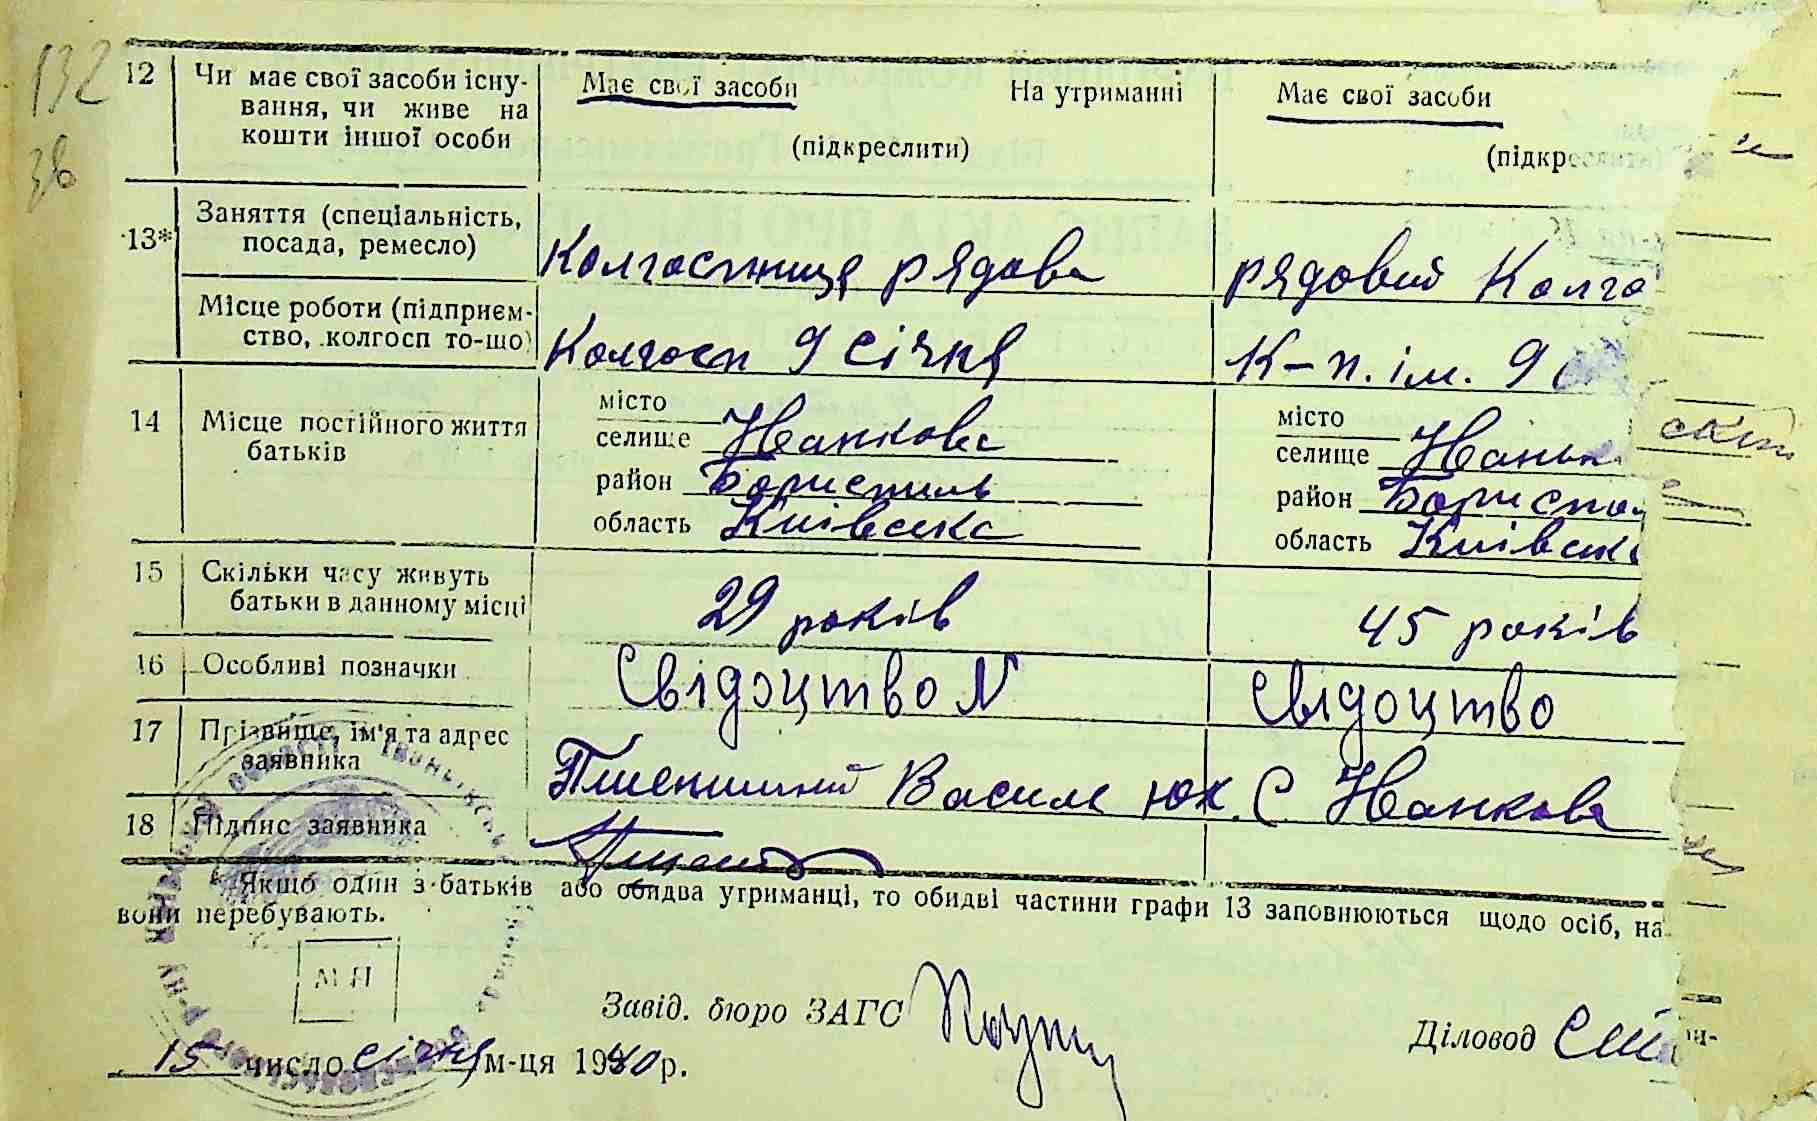 132
38
12 Чи має свої засоби існу- Має свої засоби На утриманні Має свої засоби
вання, чи живе на
кошти іншої особи (підкреслити) (підкреслити)
13* Заняття (спеціальність,
посада, ремесло) Колгоспниця рядова рядовий Колго
Місце роботи (підприєм-
ство, колгосп то-що) Колгосп 9 січня К-п. ім. 9
14 Місце постійного життя
батьків
місто місто
селище Иванкова селище Иваньк
район Бориспиль районОриспол
область Київська область Київськ
15 Скільки часу живуть
батьки в данному місці 29 років 45 років
16 Особливі позначки Свідоцтво N Свідоцтво
17 Прізвище, ім'я та адрес
заявника Василь С Иванкова
18 Підпис заявника
Якщо один з батьків або обидва утриманці, то обидві частини графи 13 заповнюються щодо осіб, на
вони перебувають.
М П
Завід. бюро ЗАГС Діловод
15 число січня м-ця 1940 р.